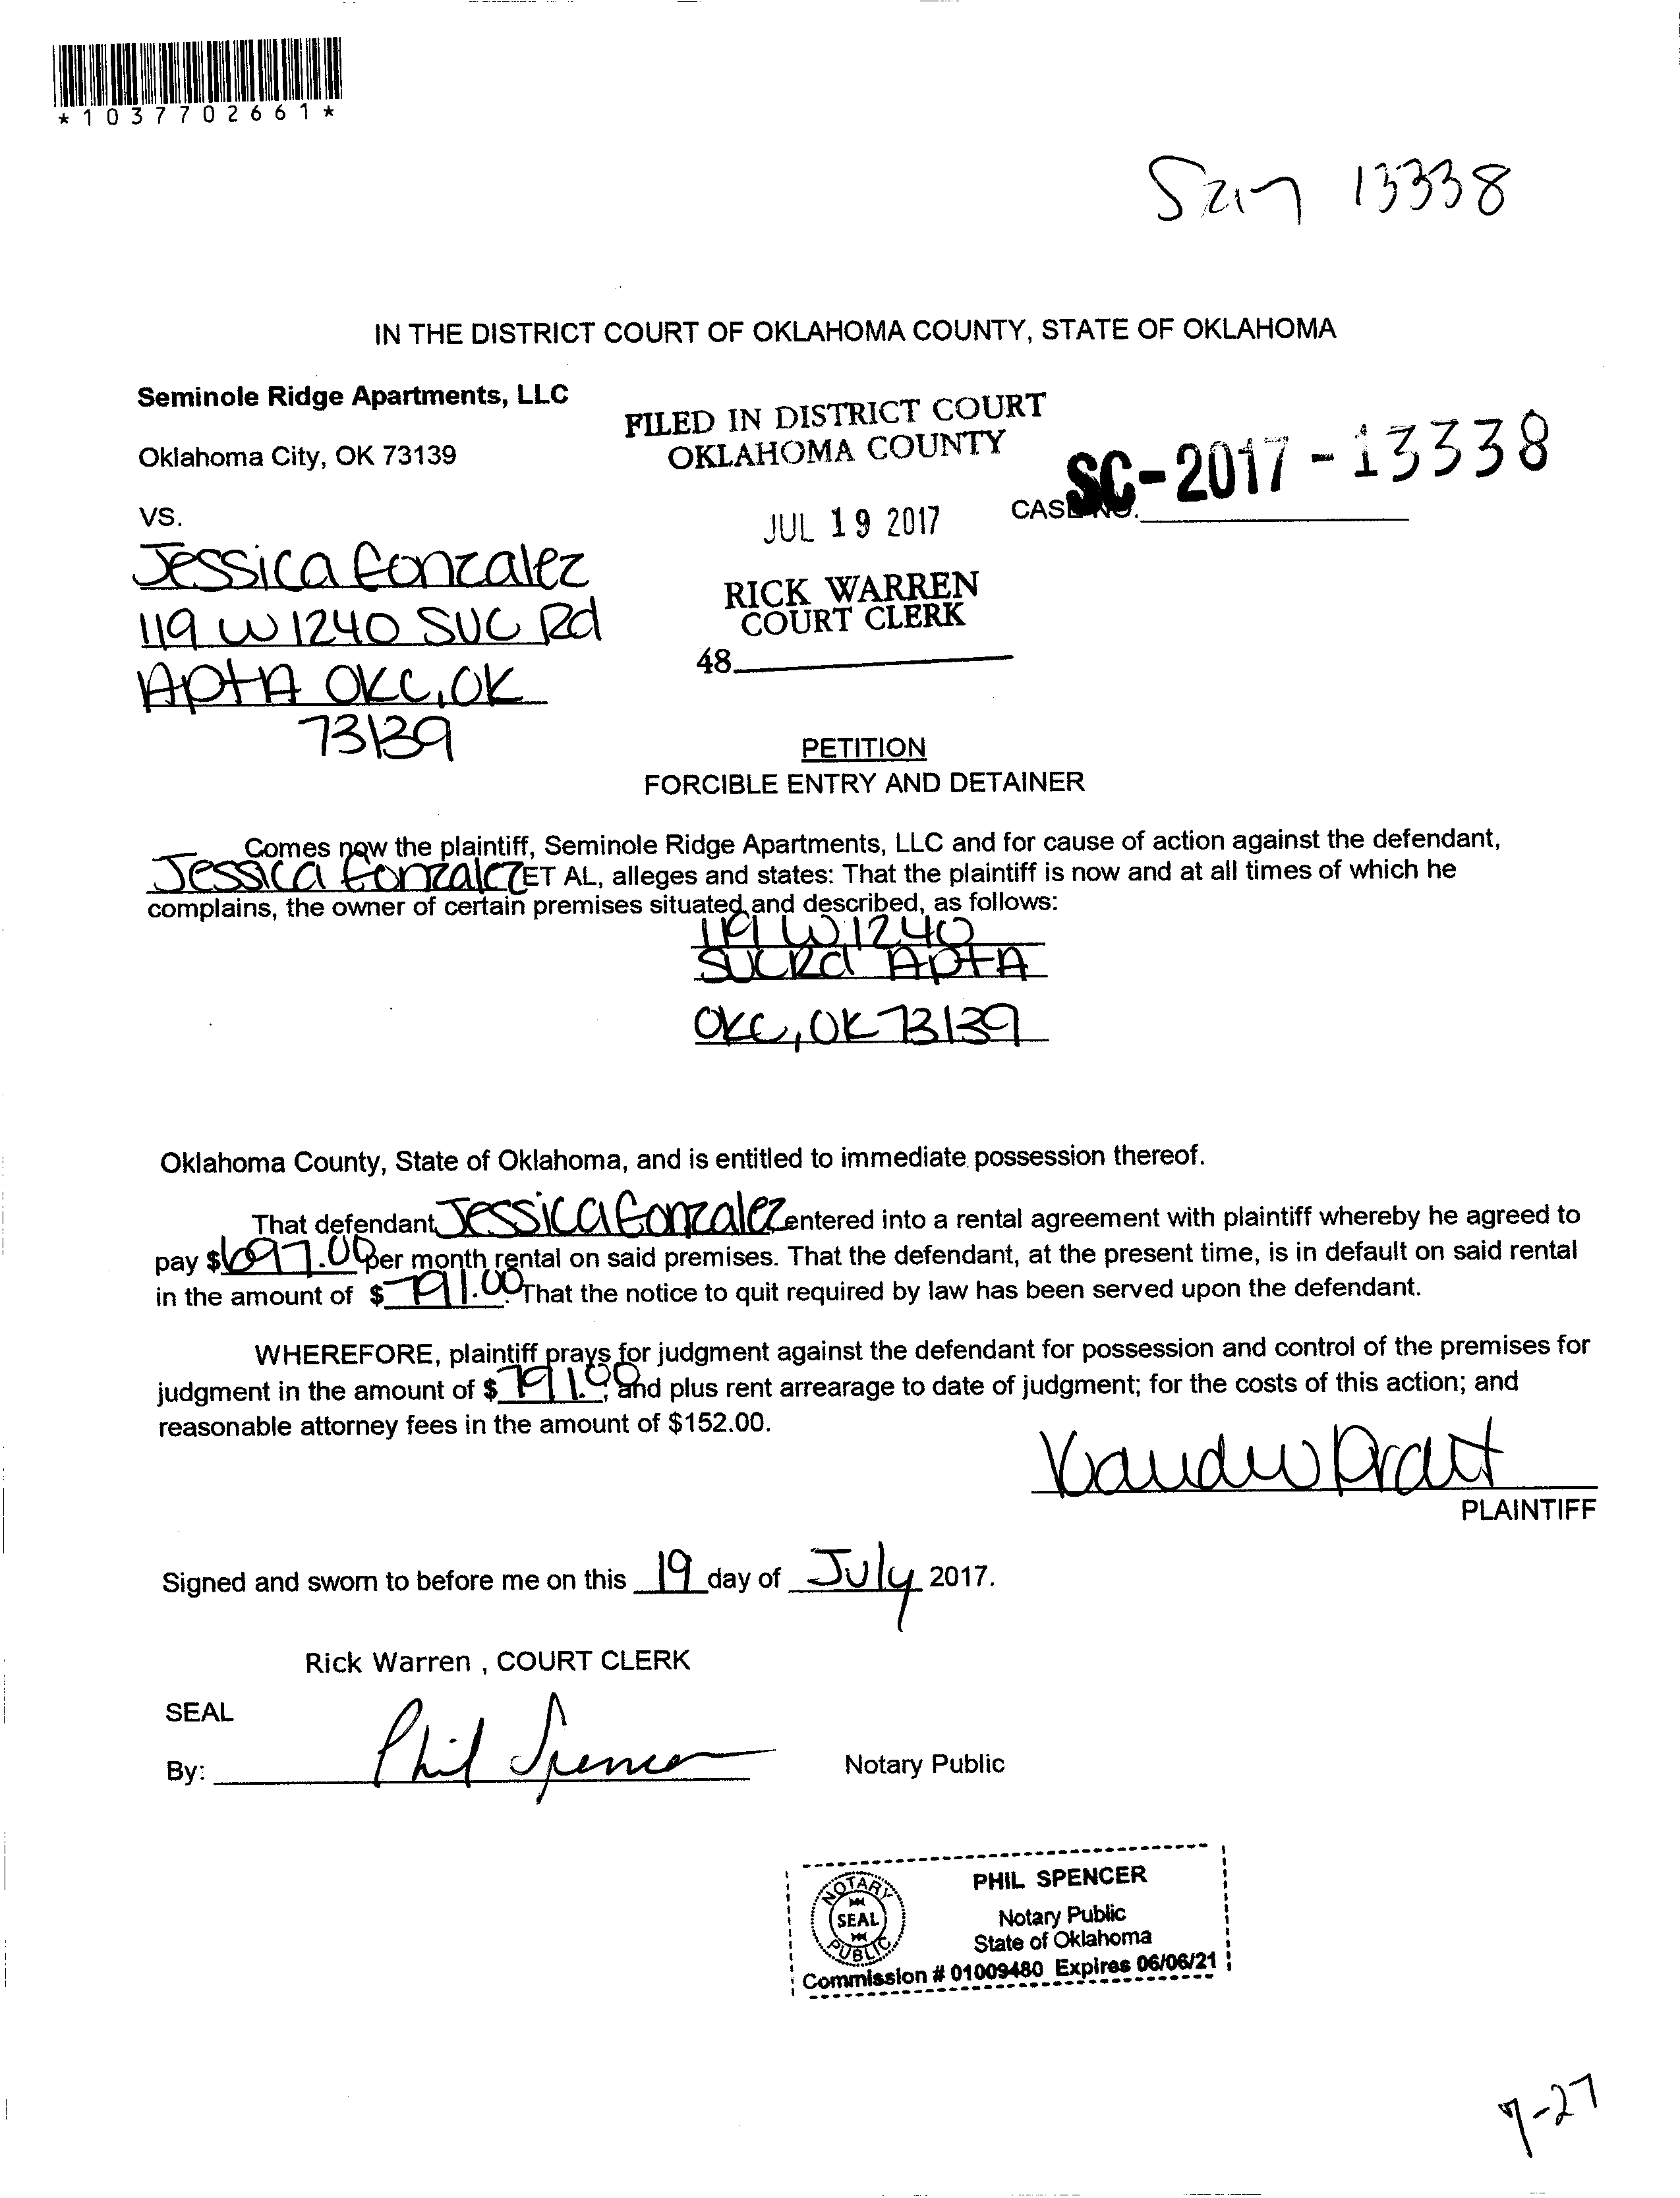 *1037702661*
13338
IN THE DISTRICT COURT OF OKLAHOMA COUNTY, STATE OF OKLAHOMA
Seminole Ridge Apartments, LLC
Oklahoma City, OK 73139
FILED IN DISTRICT COURT
OKLAHOMA COUNTY
JUL 19 2017
RICK WARREN
COURT CLERK
48
CASE NO. SC-2017-13338
VS.
Jessica Gonzalez
119 W 1240 SVC Rd
Apt A OKC, OK
73139
PETITION
FORCIBLE ENTRY AND DETAINER
Comes now the plaintiff, Seminole Ridge Apartments, LLC and for cause of action against the defendant,
Jessica Gonzalez ET AL, alleges and states: That the plaintiff is now and at all times of which he
complains, the owner of certain premises situated and described, as follows:
119 W 1240
SVC Rd Apt A
OKC, OK 73139
Oklahoma County, State of Oklahoma, and is entitled to immediate possession thereof.
That defendant Jessica Gonzalez entered into a rental agreement with plaintiff whereby he agreed to
pay $697.00 per month rental on said premises. That the defendant, at the present time, is in default on said rental
in the amount of $791.00. That the notice to quit required by law has been served upon the defendant.
WHEREFORE, plaintiff prays for judgment against the defendant for possession and control of the premises for
judgment in the amount of $791.00, and plus rent arrearage to date of judgment; for the costs of this action; and
reasonable attorney fees in the amount of $152.00.
Pratt
PLAINTIFF
Signed and sworn to before me on this 19 day of July 2017.
Rick Warren , COURT CLERK
SEAL
By: Phil Spencer Notary Public
NOTARY PUBLIC SEAL
PHIL SPENCER
Notary Public
State of Oklahoma
Commission # 01009480 Expires 06/06/21
7-27